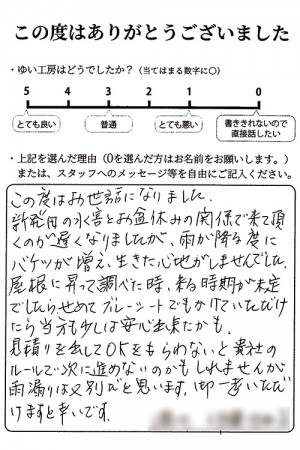 この度はありがとうございました
・ゆい工房はどうでしたか？（当てはまる数字に○）
5 4 3 2 1 0
とても良い 普通 とても悪い 書ききれないので直接話したい
・上記を選んだ理由（0を選んだ方はお名前をお願いします。）
または、スタッフへのメッセージ等を自由にご記入ください。
この度はお世話になりました。
の水害とお盆休みの関係で来て頂
くのが遅くなりましたが、雨が降る度に
バケツが増え、生きた心地がしませんでした。
屋根に昇って調べた時、来る時期が未定
でしたらせめてブルーシートでもかけていただけ
たら当方も少しは安心出来たかも。
見積りを出してOKをもらわないと貴社の
ルールで次に進めないのかもしれませんが
雨漏りは又別だと思います。御一考いただ
けますと幸いです。